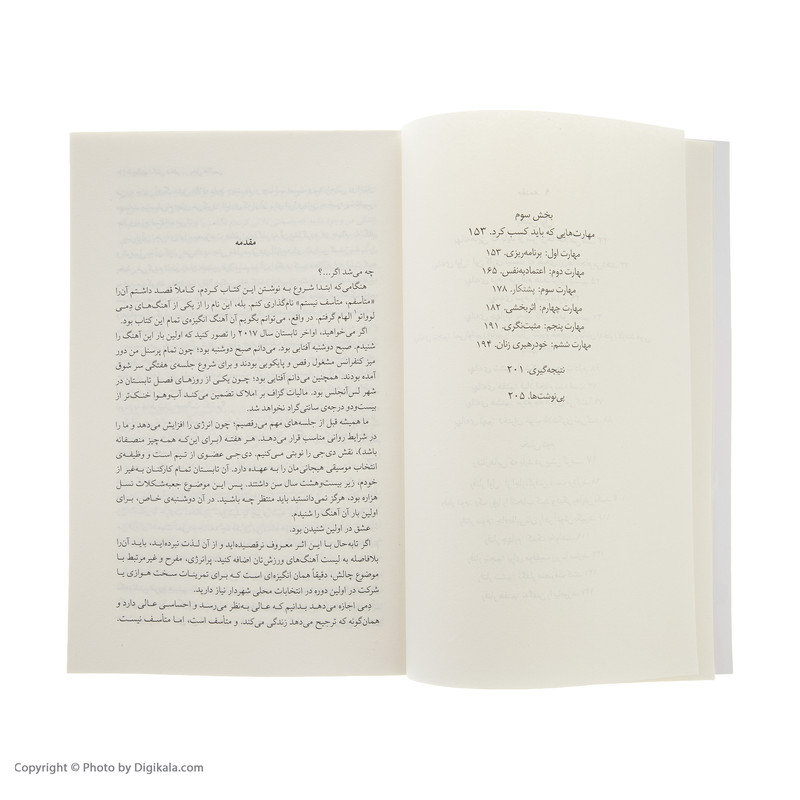 بخش سوم
مهارت‌هایی که باید کسب کرد. ۱۵۳
مهارت اول: برنامه‌ریزی. ۱۵۳
مهارت دوم: اعتمادبه‌نفس. ۱۶۵
مهارت سوم: پشتکار. ۱۷۸
مهارت چهارم: اثربخشی. ۱۸۲
مهارت پنجم: مثبت‌نگری. ۱۹۱
مهارت ششم: خودرهبری زنان. ۱۹۴
نتیجه‌گیری. ۲۰۱
پی‌نوشت‌ها. ۲۰۵
مقدمه
چه می‌شد اگر...؟
هنگامی‌که ابتدا شروع به نوشتن این کتاب کردم، کاملاً قصد داشتم آن‌را
«متأسفم، متأسف نیستم» نام‌گذاری کنم. بله، این نام را از یکی از آهنگ‌های دمی
لوواتو¹ الهام گرفتم. در واقع، می‌توانم بگویم آن آهنگ انگیزه‌ی تمام این کتاب بود.
اگر می‌خواهید، اواخر تابستان سال ۲۰۱۷ را تصور کنید که اولین بار این آهنگ را
شنیدم. صبح دوشنبه آفتابی بود. می‌دانم صبح دوشنبه بود؛ چون تمام پرسنل من دور
میز کنفرانس مشغول رقص و پایکوبی بودند و برای شروع جلسه‌ی هفتگی سر شوق
آمده بودند. همچنین می‌دانم آفتابی بود؛ چون یکی از روزهای فصل تابستان در
شهر لس‌آنجلس بود. مالیات گزاف بر املاک تضمین می‌کند آب‌وهوا خنک‌تر از
بیست‌ودو درجه‌ی سانتی‌گراد نخواهد شد.
ما همیشه قبل از جلسه‌های مهم می‌رقصیم؛ چون انرژی را افزایش می‌دهد و ما را
در شرایط روانی مناسب قرار می‌دهد. هر هفته (برای این‌که همه‌چیز منصفانه
باشد)، نقش دی‌جی را نوبتی می‌کنیم. دی‌جی عضوی از تیم است و وظیفه‌ی
انتخاب موسیقی هیجانی‌مان را به عهده دارد. آن تابستان تمام کارکنان به‌غیر از
خودم، زیر بیست‌وهشت سال سن داشتند. پس این موضوع جعبه‌شکلات نسل
هزاره بود، هرگز نمی‌دانستید باید منتظر چه باشید. در آن دوشنبه‌ی خاص، برای
اولین بار آن آهنگ را شنیدم.
عشق در اولین شنیدن بود.
اگر تابه‌حال با این اثر معروف نرقصیده‌اید و از آن لذت نبرده‌اید، باید آن‌را
بلافاصله به لیست آهنگ‌های ورزش‌تان اضافه کنید. پرانرژی، مفرح و غیرمرتبط با
موضوع چالش، دقیقاً همان انگیزه‌ای است که برای تمرینات سخت هوازی یا
شرکت در اولین دوره در انتخابات محلی شهردار نیاز دارید.
دمی اجازه می‌دهد بدانیم که عالی به‌نظر می‌رسد و احساسی عالی دارد و
همان‌گونه که ترجیح می‌دهد زندگی می‌کند. و متأسف است، اما متأسف نیست.
Copyright © Photo by Digikala.com